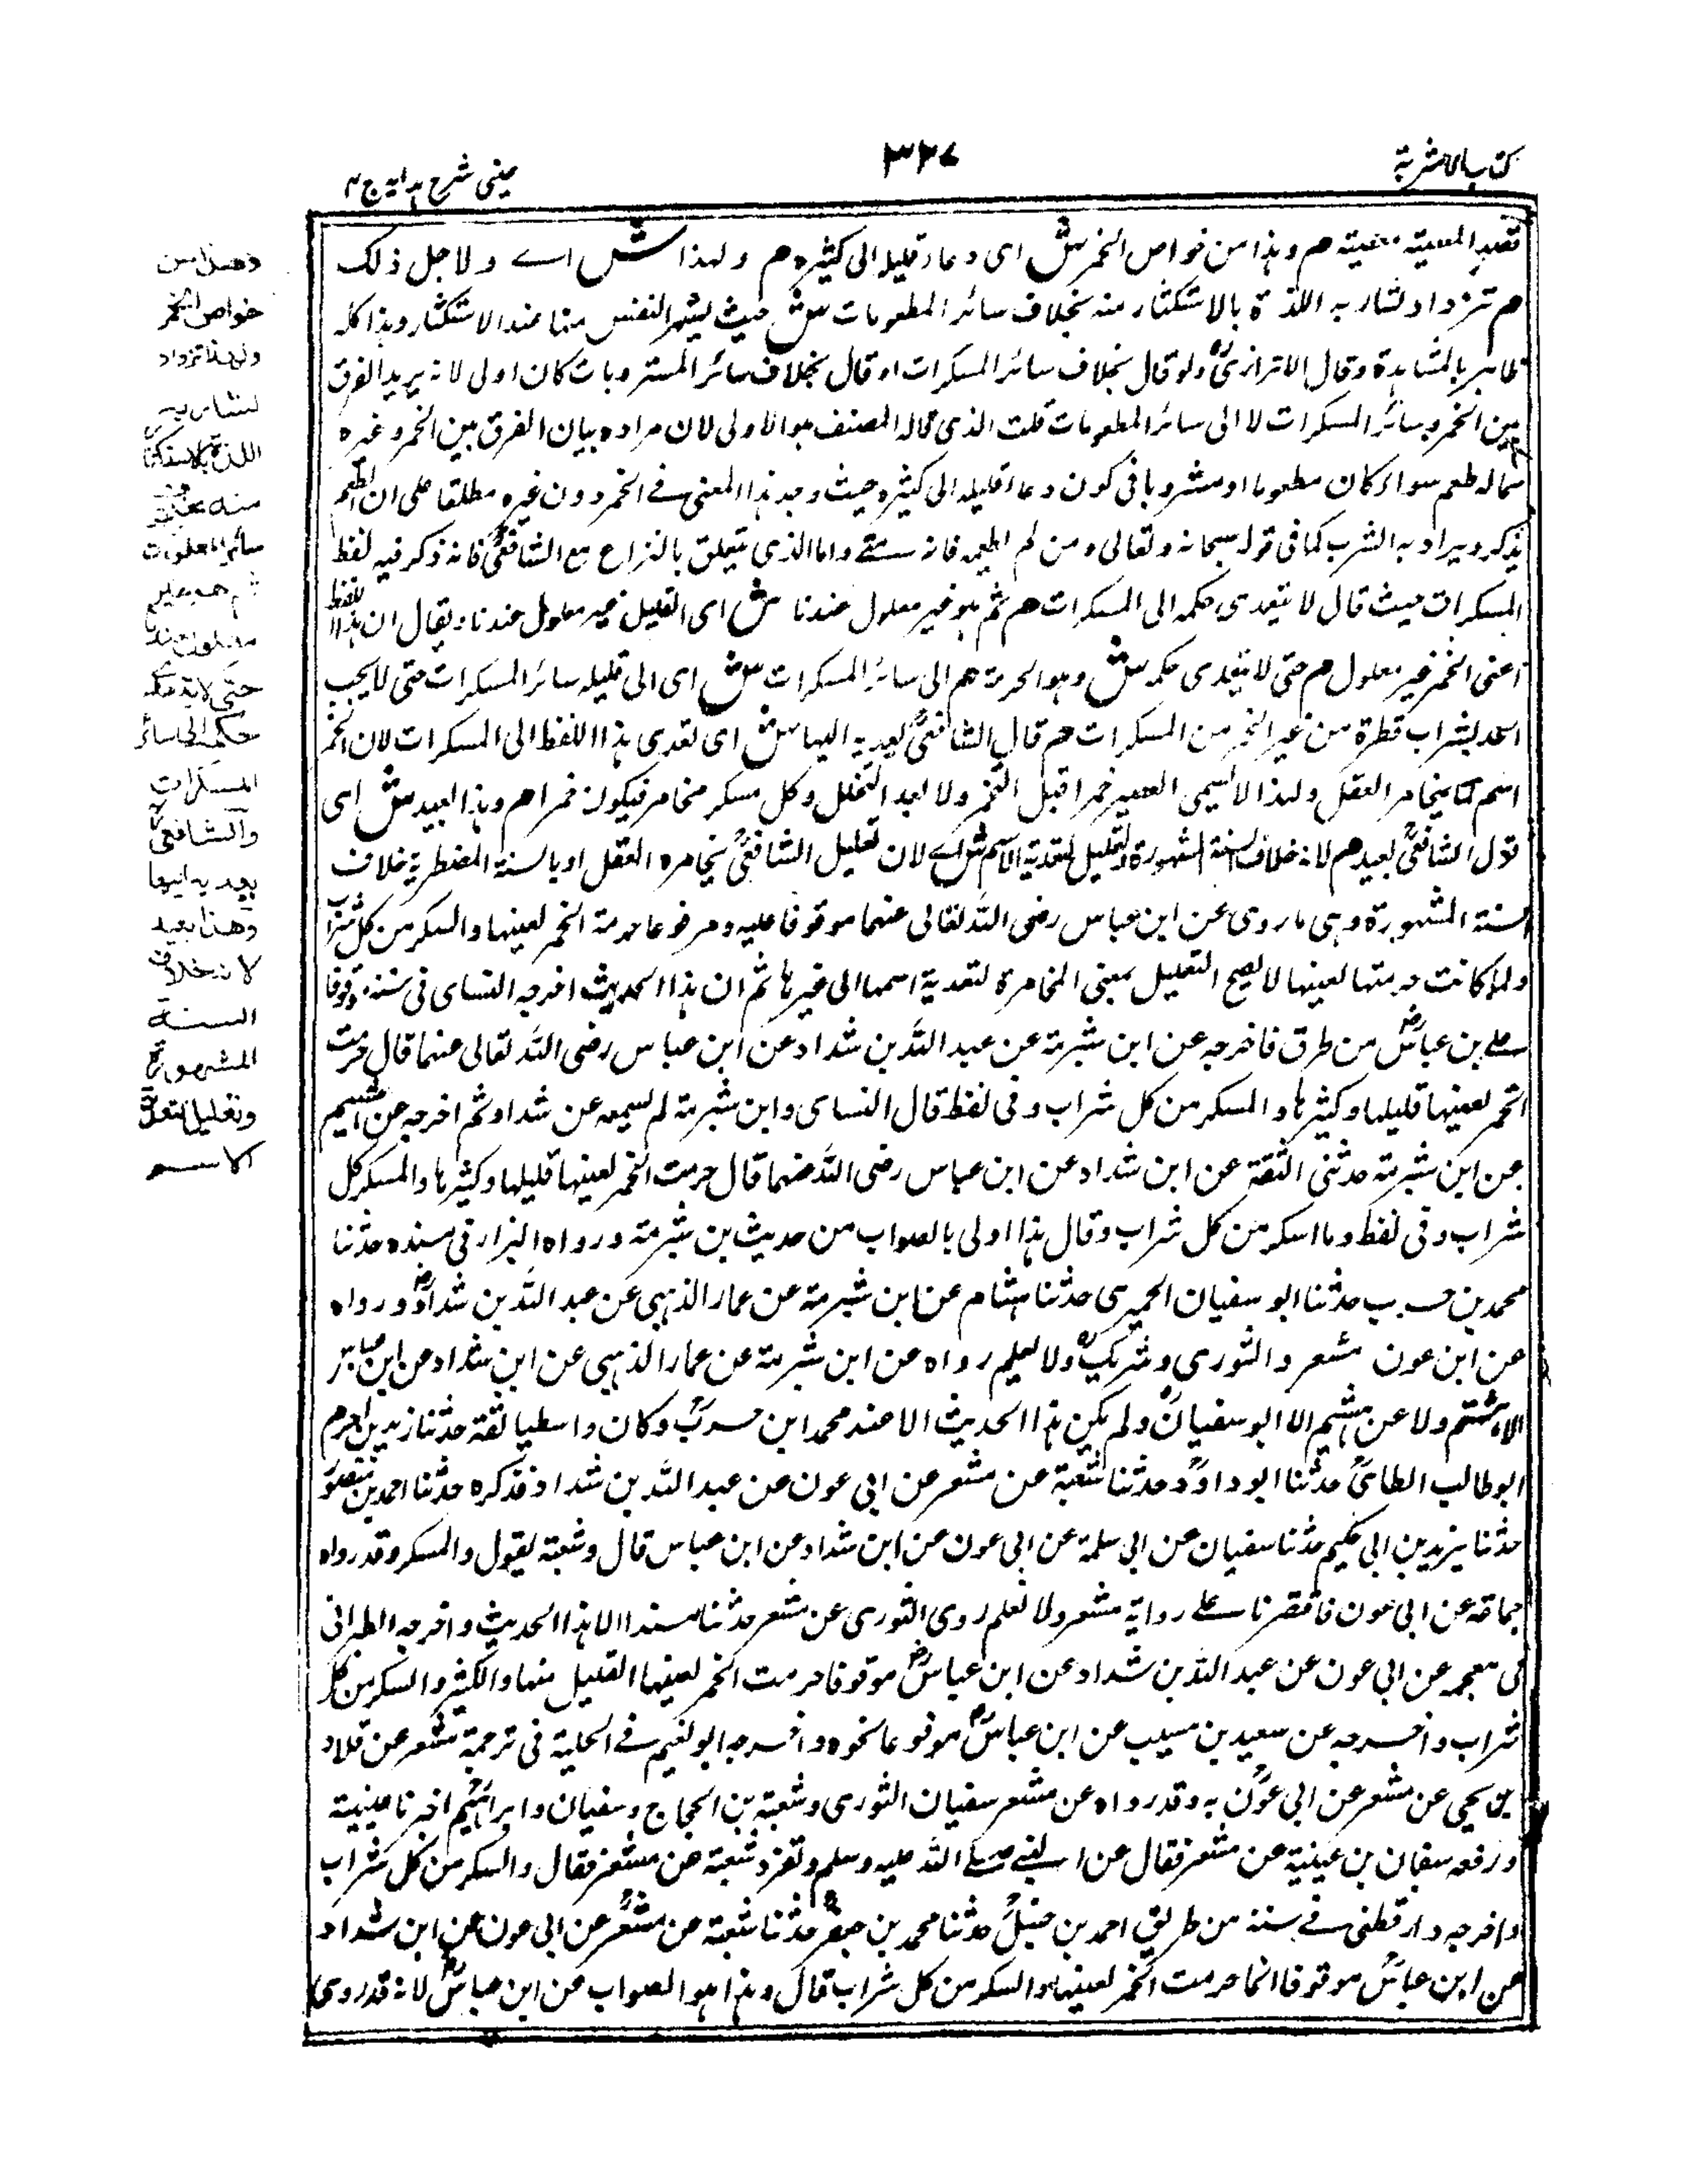 كتاب الاشربة
٣٢٧
عينى شرح هدايه ج ٤
م وهذا من خواص الخمر ش اى دعاء قليله الى كثيره م ولهذا ش اے ولاجل ذلك
م تزداد لشاربه اللذة بالاستكثار منه بخلاف سائر المطعومات ش حيث يشبهر النفس منها عند الاستكثار وهذا كله
ظاهر بالمشاهدة وقال الاترازىؒ ولو قال بخلاف سائر المسكرات او قال بخلاف سائر المشروبات كان اولى لانه يريد الفرق
بين الخمر وسائر المسكرات لا الى سائر المطعومات قلت الذى قاله المصنف هو الاولى لان مراده بيان الفرق بين الخمر وغيره
مما له طعم سواء كان مطعوما او مشروبا فى كون دعاء قليله الى كثيره حيث وجد هذا المعنى فے الخمر دون غيره مطلقا على ان الطعم
يذكر ويراد به الشرب كما فى قوله سبحانه وتعالى ومن لم يطعمه فانه منے واما الذى يتعلق بالنزاع مع الشافعىؒ فانه ذكر فيه لفظ
المسكرات حيث قال لا يتعدى حكمه الى المسكرات م ثم هو غير معلول عندنا ش اى القليل غير معلول عندنا ويقال ان هذا اللفظ
اعنى الخمر غير معلول م حتى لا يتعدى حكمه ش وهو الحرمة م الى سائر المسكرات ش اى الى قليله سائر المسكرات حتى لا يجب
الحد بشراب قطرة من غير الخمر من المسكرات م قال الشافعىؒ يعديه اليها ش اى تعدى هذا اللفظ الى المسكرات لان الخمر
اسم لما يخامر العقل ولهذا لا يسمى العصير خمرا قبل التخمر ولا بعد التخلل وكل مسكر مخامر فيكون خمرا م وهذا بعيد ش اى
قول الشافعىؒ بعيد م لانه خلاف السنة المشهورة وتعليل لتعدية الاسم ش اے لان تعليل الشافعىؒ بخامره العقل او بالسنة المضطرية خلاف
السنة المشهورة وهى ما روى عن ابن عباس رضى الله تعالى عنهما موقوفا عليه ومرفوعا حرمة الخمر لعينها والسكر من كل شراب
ولما كانت حرمتها لعينها لا يصح التعليل بمعنى المخامرة لتعدية اسمها الى غيرها ثم ان هذا الحديث اخرجه النساى فى سننه موقوفا
علے بن عباسؓ من طرق فاخرجه عن ابن شبرمة عن عبد الله بن شداد عن ابن عباس رضى الله تعالى عنهما قال حرمت
الخمر لعينها قليلها وكثيرها والمسكر من كل شراب وفى لفظ قال النساى وابن شبرمة لم يسمعه عن شداد ثم اخرجه عن هشيم
عن ابن شبرمة حدثنى الثقة عن ابن شداد عن ابن عباس رضى الله عنهما قال حرمت الخمر لعينها قليلها وكثيرها والمسكر كل
شراب وفى لفظ وما اسكر من كل شراب وقال هذا اولى بالصواب من حديث بن شبرمة ورواه البزار فى مسنده حدثنا
محمد بن حرب حدثنا ابو سفيان الحميرى حدثنا هشام عن ابن شبرمة عن عمار الذهبى عن عبد الله بن شدادؓ ورواه
عن ابن عون مسعر والثورى وشريكؒ ولا نعلم رواه عن ابن شبرمة عن عمار الذهبى عن ابن شداد عن ابن عباس
الا هشيم ولا عن هشيم الا ابو سفيانؒ ولم يكن هذا الحديث الا عند محمد ابن حربؒ وكان واسطيا ثقة حدثنا زيد بن اخرم
ابو طالب الطاىؒ حدثنا ابو داودؒ حدثنا شعبة عن مسعر عن ابى عون عن عبد الله بن شداد فذكره حدثنا احمد بن منصور
حدثنا يزيد بن ابى حكيم حدثنا سفيان عن ابى سلمة عن ابى عون عن ابن شداد عن ابن عباس قال وشعبة يقول والمسكر وقد رواه
جماعة عن ابى عون فاقتصرنا علے رواية مسعر ولا نعلم روى الثورى عن مسعر حدثنا مسندا الا هذا الحديث واخرجه الطبرانى
فى معجمه عن ابى عون عن عبد الله بن شداد عن ابن عباسؓ موقوفا حرمت الخمر لعينها القليل منها والكثير والسكر من كل
شراب واخرجه عن سعيد بن مسيب عن ابن عباسؓ مرفوعا نحوه واخرجه ابو نعيم فے الحلية فى ترجمة مسعر عن خلاد
بن يحيى عن مسعر عن ابى عونؒ به وقد رواه عن مسعر سفيان الثورى وشعبة بن الحجاج وسفيان وابراهيم اخبرنا عيينة
ورفعه سفيان بن عيينة عن مسعر فقال عن النبے صلے الله عليه وسلم وتفرد شعبة عن مسعر فقال والمسكر من كل شراب
واخرجه دارقطنى فے سننه من طريق احمد بن حنبلؒ حدثنا محمد بن جعفر حدثنا شعبة عن مسعرؒ عن ابى عون عن ابن شداد
عن ابن عباسؓ موقوفا انما حرمت الخمر لعينها والسكر من كل شراب قال وهذا هو الصواب عن ابن عباسؓ لانه قد روى
وهذا من
خواص الخمر
ولهذا تزداد
لشاربه
اللذة بالاستكثار
منه بخلاف
سائر المطعومات
ثم هو غير
معلول عندنا
حتى لا يتعدى
حكمه الى سائر
المسكرات
والشافعىؒ
يعديه اليها
وهذا بعيد
لانه خلاف
السنة
المشهورة
وتعليل لتعدية
الاسم